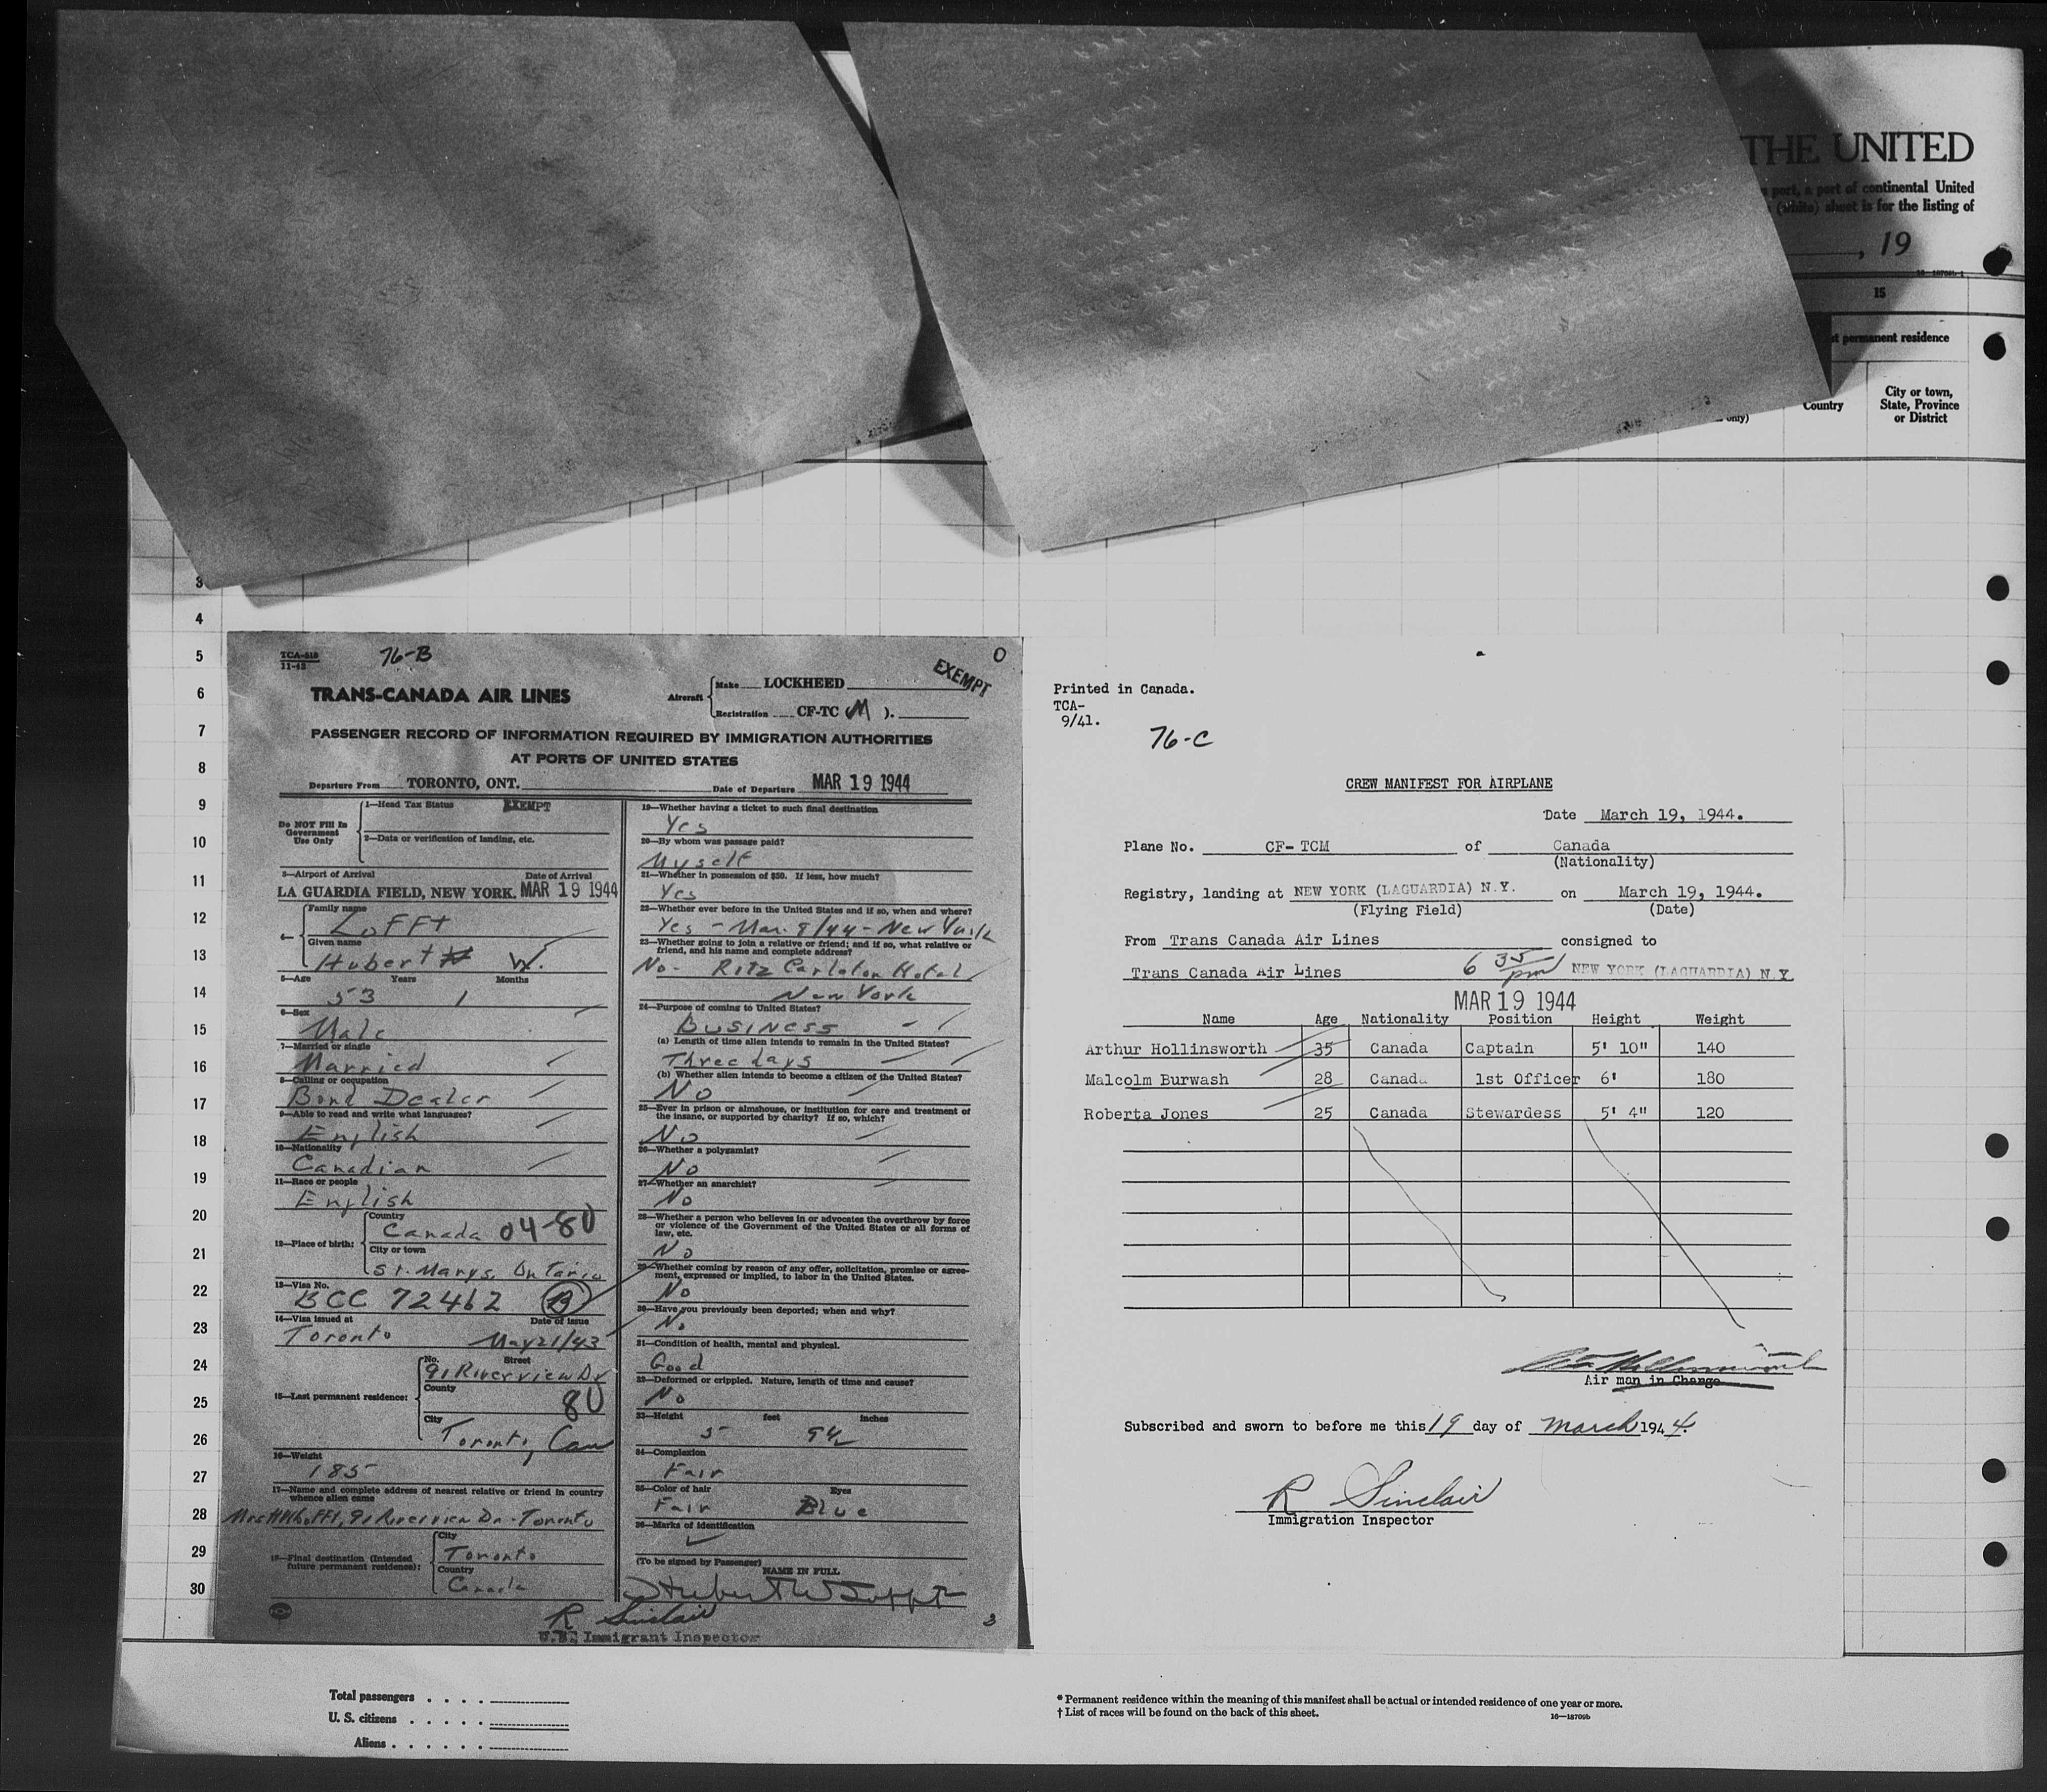 THE UNITED
port, a port of continental United
(white) sheet is for the listing of
, 19
15
permanent residence
only)
Country
City or town,
State, Province
or District
3
4
5
6
7
8
9
10
11
12
13
14
15
16
17
18
19
20
21
22
23
24
25
26
27
28
29
30
TCA-518
11-42
76-B
O
EXEMPT
TRANS-CANADA AIR LINES
Aircraft
Make LOCKHEED
Registration CF-TC M ).
PASSENGER RECORD OF INFORMATION REQUIRED BY IMMIGRATION AUTHORITIES
AT PORTS OF UNITED STATES
Departure From TORONTO, ONT.
Date of Departure MAR 19 1944
Do NOT Fill In
Government
Use Only
1—Head Tax Status EXEMPT
2—Data or verification of landing, etc.
3—Airport of Arrival Date of Arrival
LA GUARDIA FIELD, NEW YORK. MAR 19 1944
Family name
Lofft
Given name
Hubert W.
5—Age Years Months
53 1
6—Sex
Male
7—Married or single
Married
8—Calling or occupation
Bond Dealer
9—Able to read and write what languages?
English
10—Nationality
Canadian
11—Race or people
English
12—Place of birth:
Country
Canada 04-80
City or town
St. Marys, Ontario
13—Visa No.
BCC 72462 B
14—Visa issued at Date of issue
Toronto May 21/43
15—Last permanent residence:
No. Street
91 Riverview Dr
County
80
City
Toronto, Can
16—Weight
185
17—Name and complete address of nearest relative or friend in country
whence alien came
Mrs H W Lofft, 91 Riverview Dr - Toronto
18—Final destination (Intended
future permanent residence):
City
Toronto
Country
Canada
19—Whether having a ticket to such final destination
Yes
20—By whom was passage paid?
Myself
21—Whether in possession of $50. If less, how much?
Yes
22—Whether ever before in the United States and if so, when and where?
Yes - Mar. 8/44 - New York
23—Whether going to join a relative or friend; and if so, what relative or
friend, and his name and complete address?
No - Ritz Carleton Hotel
New York
24—Purpose of coming to United States?
Business
(a) Length of time alien intends to remain in the United States?
Three days
(b) Whether alien intends to become a citizen of the United States?
No
25—Ever in prison or almshouse, or institution for care and treatment of
the insane, or supported by charity? If so, which?
No
26—Whether a polygamist?
No
27—Whether an anarchist?
No
28—Whether a person who believes in or advocates the overthrow by force
or violence of the Government of the United States or all forms of
law, etc.
No
29—Whether coming by reason of any offer, solicitation, promise or agree-
ment, expressed or implied, to labor in the United States.
No
30—Have you previously been deported; when and why?
No
31—Condition of health, mental and physical.
Good
32—Deformed or crippled. Nature, length of time and cause?
No
33—Height feet inches
5 9½
34—Complexion
Fair
35—Color of hair Eyes
Fair Blue
36—Marks of identification
(To be signed by Passenger) NAME IN FULL
Hubert W Lofft
R Sinclair
U.S. Immigrant Inspector
3
Printed in Canada.
TCA-
9/41.
76-C
CREW MANIFEST FOR AIRPLANE
Date March 19, 1944.
Plane No. CF- TCM of Canada
(Nationality)
Registry, landing at NEW YORK (LAGUARDIA) N.Y. on March 19, 1944.
(Flying Field) (Date)
From Trans Canada Air Lines consigned to
Trans Canada Air Lines 6 35 pm NEW YORK (LAGUARDIA) N.Y.
MAR 19 1944
Name Age Nationality Position Height Weight
Arthur Hollinsworth 35 Canada Captain 5' 10" 140
Malcolm Burwash 28 Canada 1st Officer 6' 180
Roberta Jones 25 Canada Stewardess 5' 4" 120
Air man in Charge
Subscribed and sworn to before me this 19 day of March 1944.
R Sinclair
Immigration Inspector
Total passengers . . . .
U. S. citizens . . . . .
Aliens . . . . . .
* Permanent residence within the meaning of this manifest shall be actual or intended residence of one year or more.
† List of races will be found on the back of this sheet.
16—18709b